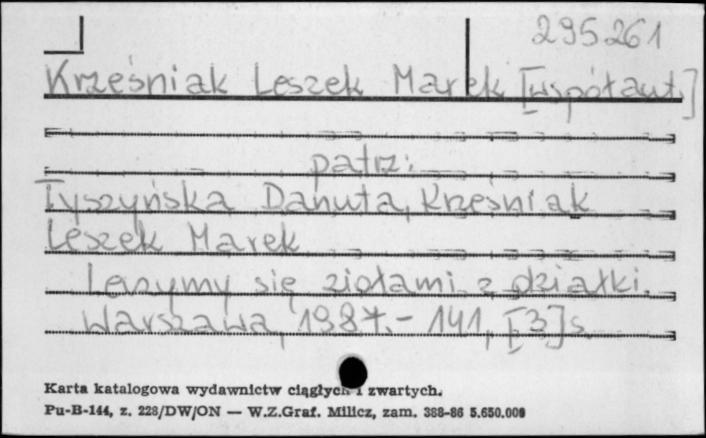 295261
Krześniak Leszek Marek [współaut.]
patrz:
Tyszyńska Danuta, Krześniak
Leszek Marek
Leczymy się ziołami z działki.
Warszawa, 1987.- 141, [3]s.
Karta katalogowa wydawnictw ciągłych i zwartych.
Pu-B-144, z. 228/DW/ON — W.Z.Graf. Milicz, zam. 388-86 5.650.000